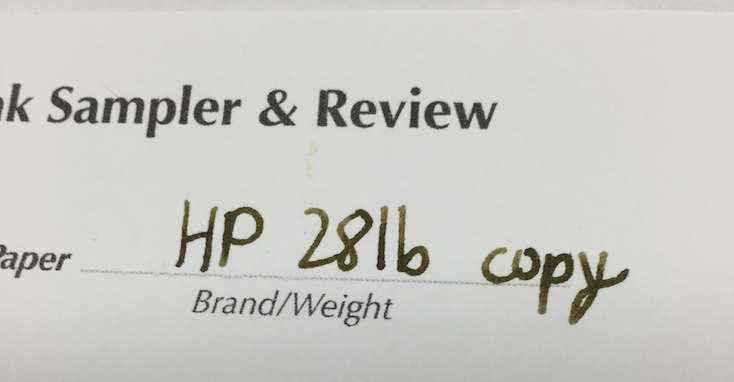 nk Sampler & Review
Paper HP 28lb copy
Brand/Weight